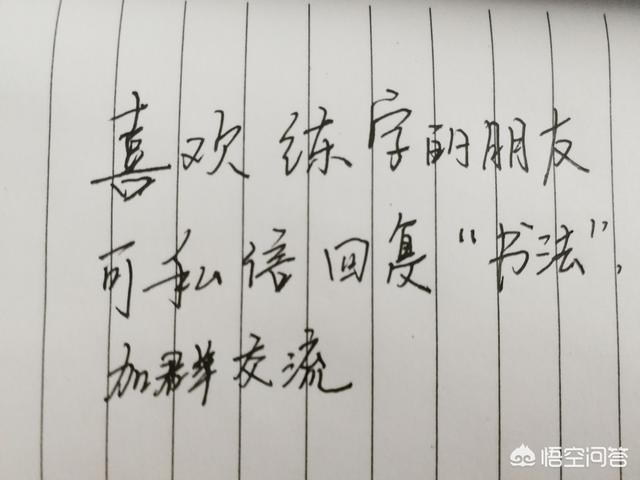 喜欢练字的朋友
可私信回复“书法”,
加群交流
悟空问答